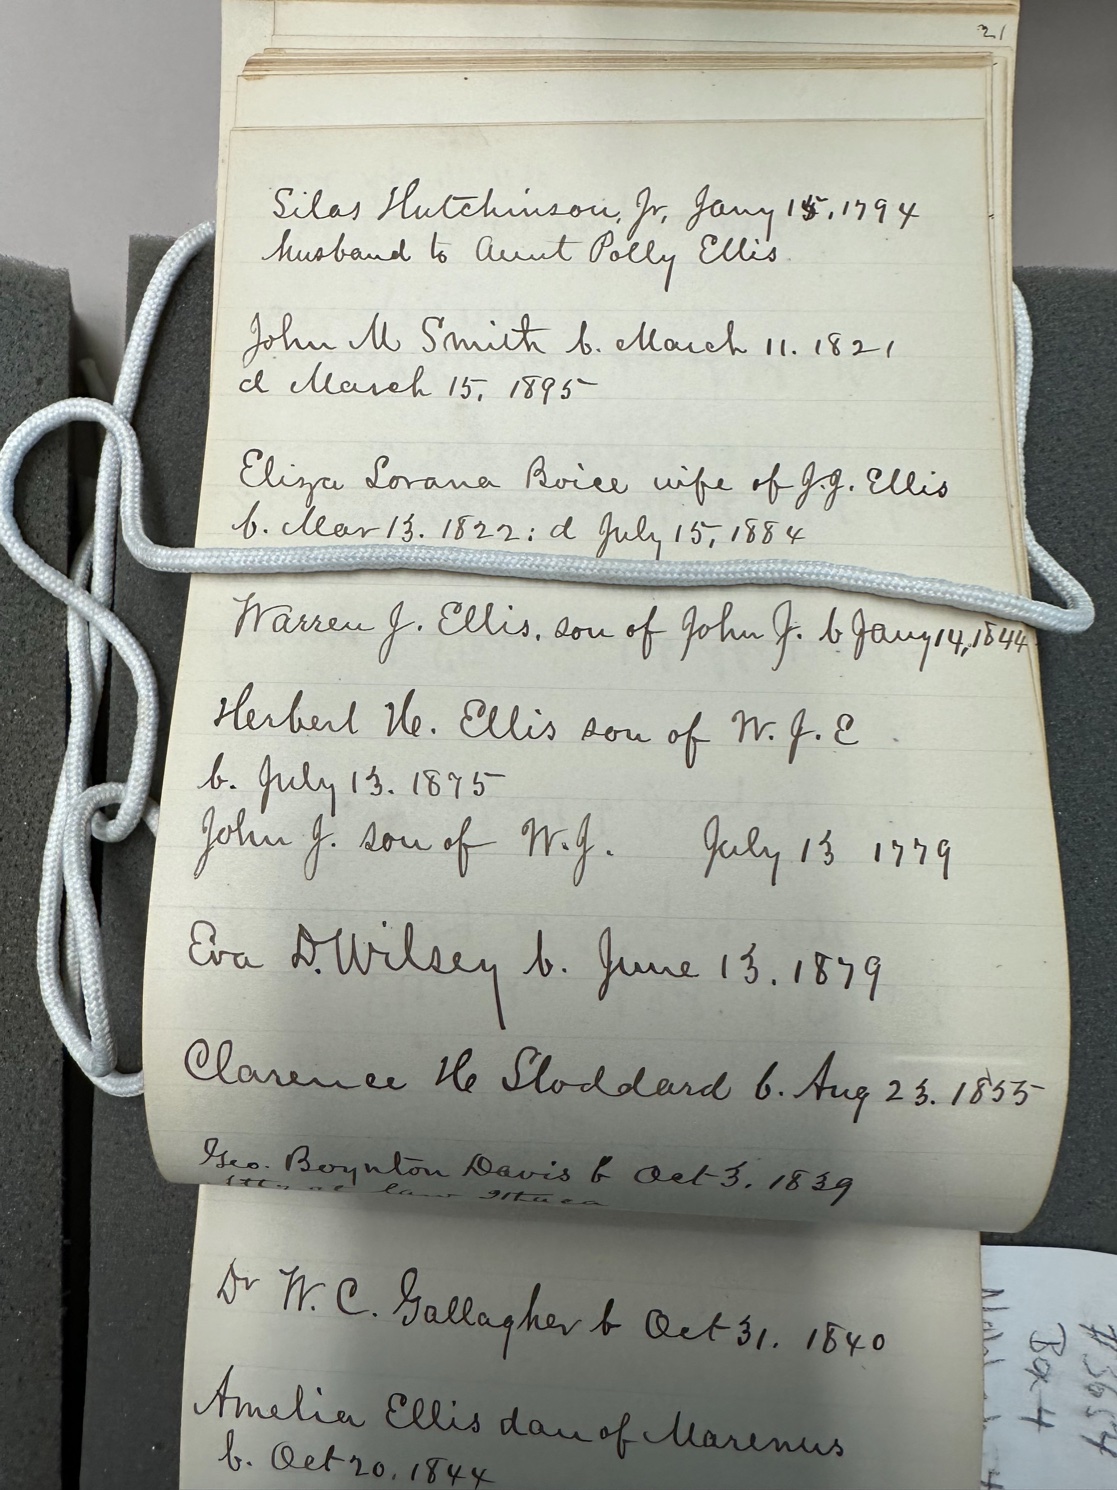 21
Silas Hutchinson, Jr, Jany 15, 1794
husband to Aunt Polly Ellis
John M Smith b. March 11. 1821
d March 15, 1895
Eliza Lorana Boice wife of J.J. Ellis
b. Mar 13. 1822: d July 15, 1884
Warren J. Ellis, son of John J. b Jany 14, 1844
Herbert H. Ellis son of W. J. E
b. July 13. 1875
John J. son of W. J. July 13 1779
Eva D. Wilsey b. June 13. 1879
Clarence H Stoddard b. Aug 23. 1855
Geo. Boynton Davis b Oct 3. 1839
Atty at law Ithaca
Dr W. C. Gallagher b Oct 31. 1840
Amelia Ellis dau of Marenus
b. Oct 20. 1844
#3654
Box 4